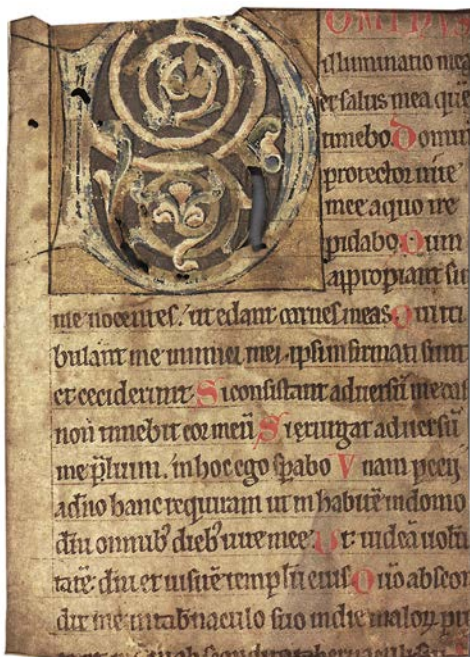 OMINUS
illuminatio mea
et salus mea quē
timebo. Domin
protector uite
mee a quo tre
pidabo. Dum
appropiant su
me nocentes. ut edant carnes meas. Qui tri
bulant me inimici mei. ipsi infirmati sunt
et ceciderunt. Si consistant aduersū me cas
non timebit cor meū Si exurgat aduersū
me p̄lium. in hoc ego sp̄abo Vnam pecii
a dn̄o hanc requiram ut inhabitē in domo
dn̄i omnib; dieb; uite mee. Ut uideā uolū
tatē dn̄i et uisitē templū eius. Quō abscon
dit me in tab̄naculo suo in die malor̄